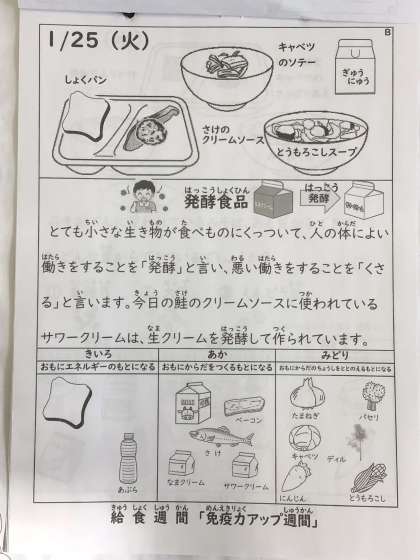 B
1/25（火）
キャベツ
のソテー
ぎゅう
にゅう
しょくパン
さけの
クリームソース
とうもろこしスープ
はっこうしょくひん
発酵食品
はっこう
発酵
とても小さな生き物が食べものにくっついて、人の体によい
働きをすることを「発酵」と言い、悪い働きをすることを「くさ
る」と言います。今日の鮭のクリームソースに使われている
サワークリームは、生クリームを発酵して作られています。
きいろ あか みどり
おもにエネルギーのもとになる おもにからだをつくるもとになる おもにからだのちょうしをととのえるもとになる
たまねぎ パセリ
ベーコン
さけ
キャベツ ディル
あぶら なまクリーム サワークリーム にんじん とうもろこし
きゅう しょく しゅう かん めんえきりょく しゅうかん
給食週間「免疫力アップ週間」